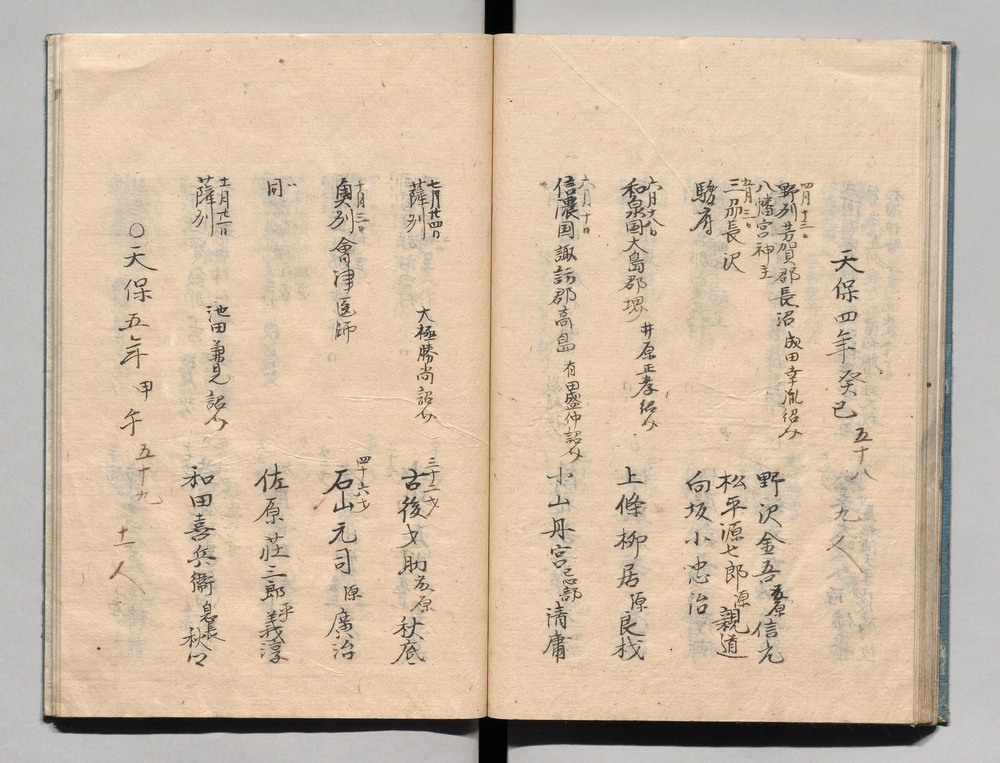 天保四年癸巳 五十八 九人
四月十三日
野列芳賀郡長沼 成田幸胤紹介 野沢金吾 藤原信光
八幡宮神主
五月三日
三州長沢 松平源七郎 源親道
駿府 向坂小忠治
六月十八日
和泉国大島郡堺 井原正孝紹介 上條柳居 源良
六月十日
信濃国諏訪郡高島 有田盛仲紹介 小山丹宮 忌部清庸
七月廿四日
薩列 大極勝尚紹介 三十二才 古後才助 藤原秋底
十月三日
奥列會津医師 四十六才 石山元司 源廣治
同 佐原荘三郎 平義淳
十一月廿一日
薩列 池田兼見紹介 和田喜兵衛 息長秋
〇天保五年甲午 五十九 十一人